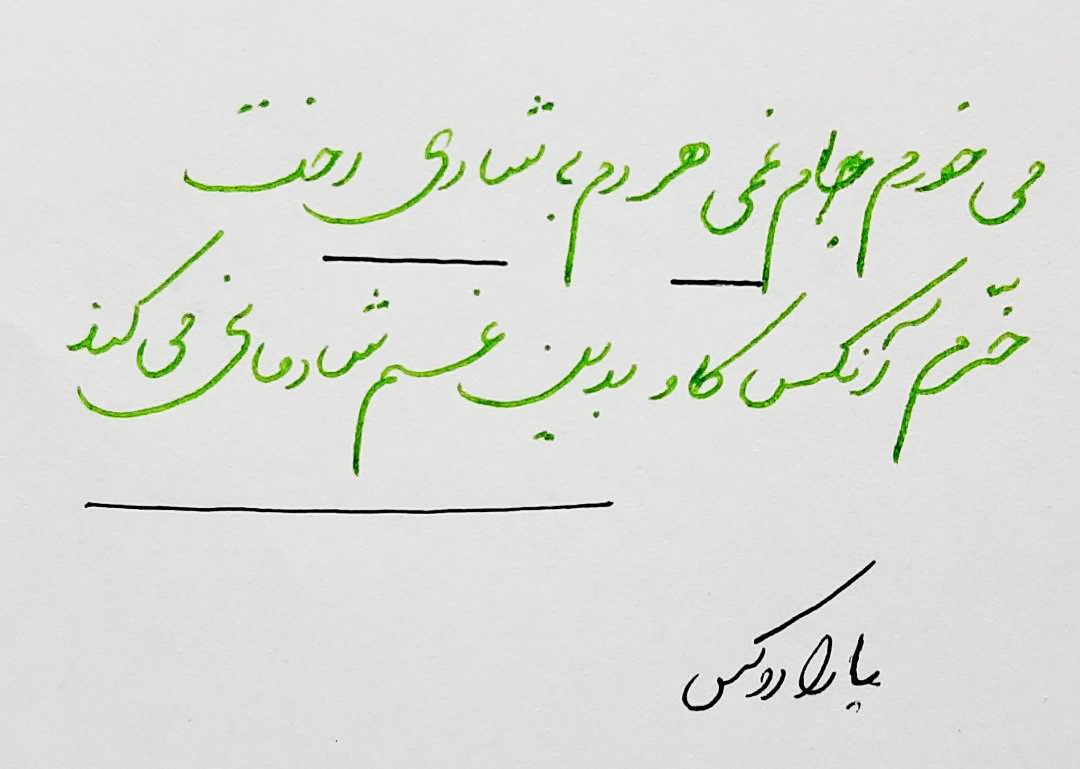 می خورم جام غمی هر دم به شادی رخت
خرّم آنکس کاو بدین غم شادمانی می کند
پارادوکس